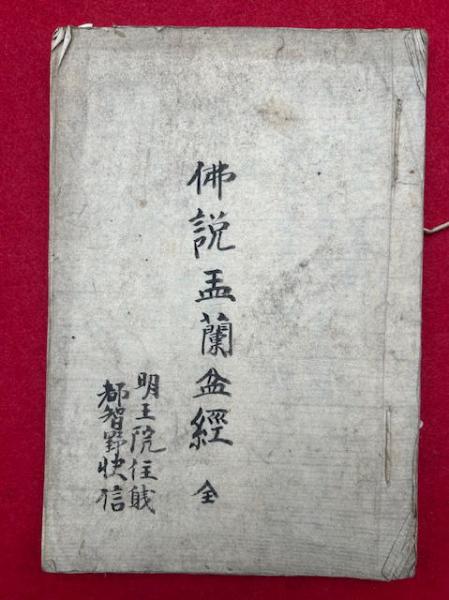 佛説盂蘭盆經 全
明王院住職
都智野快信